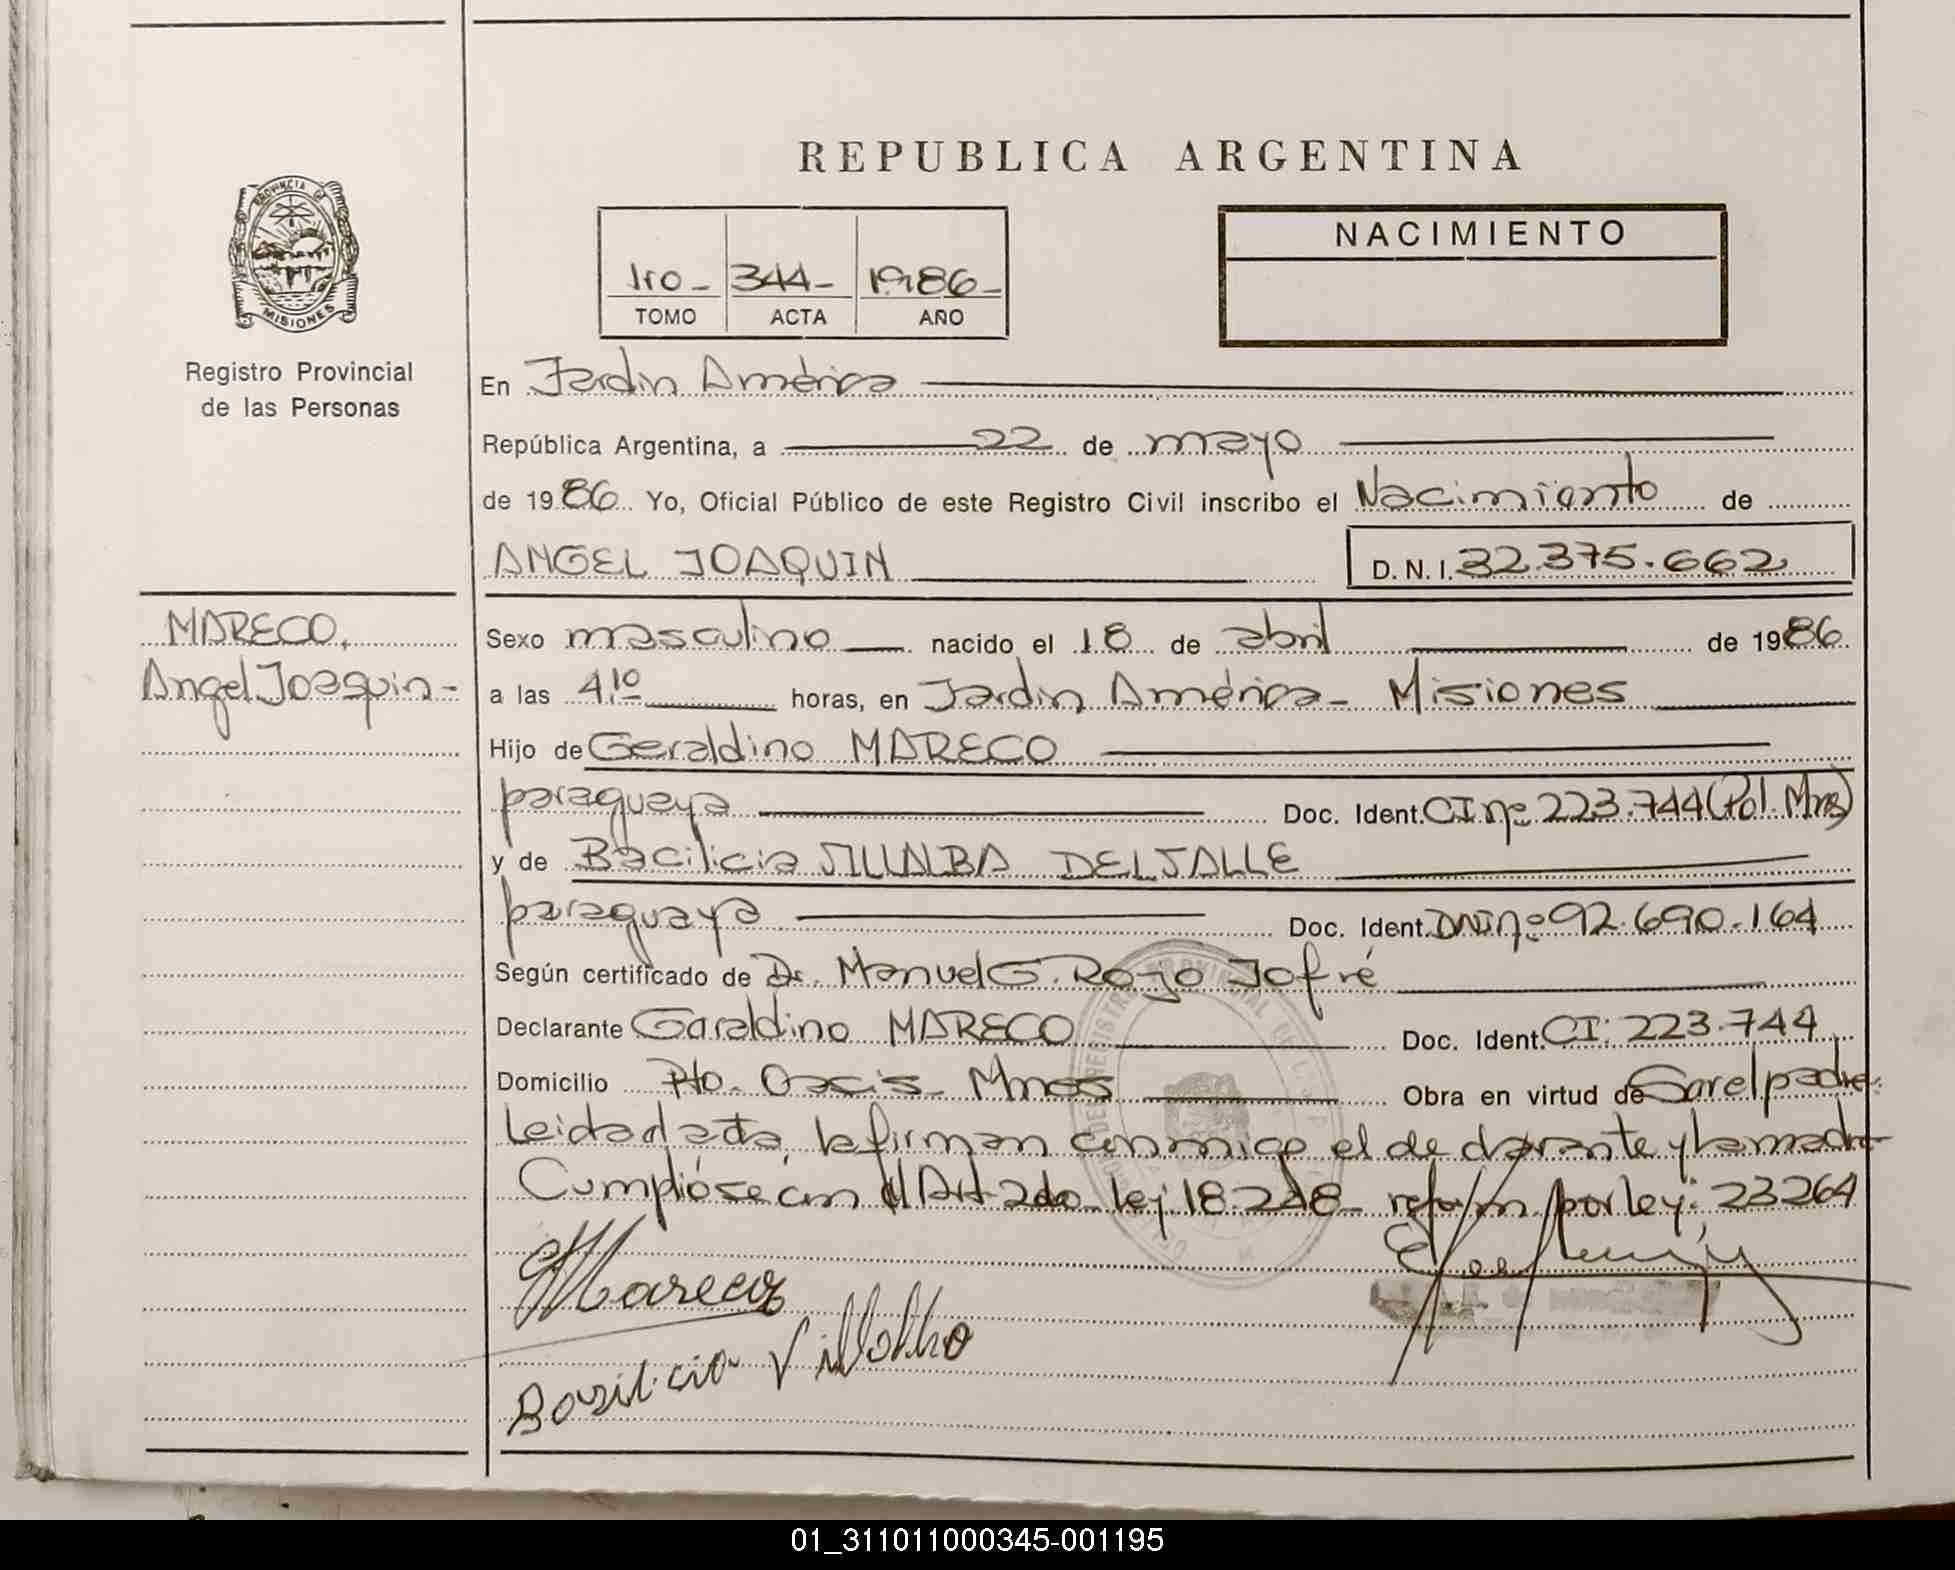 REPUBLICA ARGENTINA
PROVINCIA DE
MISIONES
Registro Provincial
de las Personas
1ro - 344 - 1986 -
TOMO ACTA AÑO
NACIMIENTO
En Jardin América
República Argentina, a 22 de mayo
de 1986 Yo, Oficial Público de este Registro Civil inscribo el Nacimiento de
ANGEL JOAQUIN D.N.I. 32.375.662
MARECO,
Angel Joaquin -
Sexo masculino nacido el 18 de abril de 1986
a las 4,10 horas, en Jardin América - Misiones
Hijo de Geraldino MARECO
paraguaya Doc. Ident. CI nº 223.744 (Pol. Mns)
y de Bacilicia DEL VALLE
paraguaya Doc. Ident. DNI nº 92.690.164
Según certificado de Dr. Manuel G. Rojo Jofré
Declarante Garaldino MARECO Doc. Ident. CI: 223.744
Domicilio Pto. Oacis - Mnes Obra en virtud de Sarel padre.
Leida el acta, la firman conmigo el declarante y la madre
Cumplióse con el Art 2do ley 18.248 - reform. por ley: 23264
Mareco
Basilicia Villalba
01_311011000345-001195